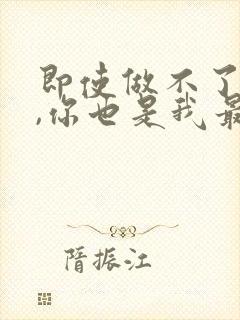 即使做不了
,你也是我最
隋振江